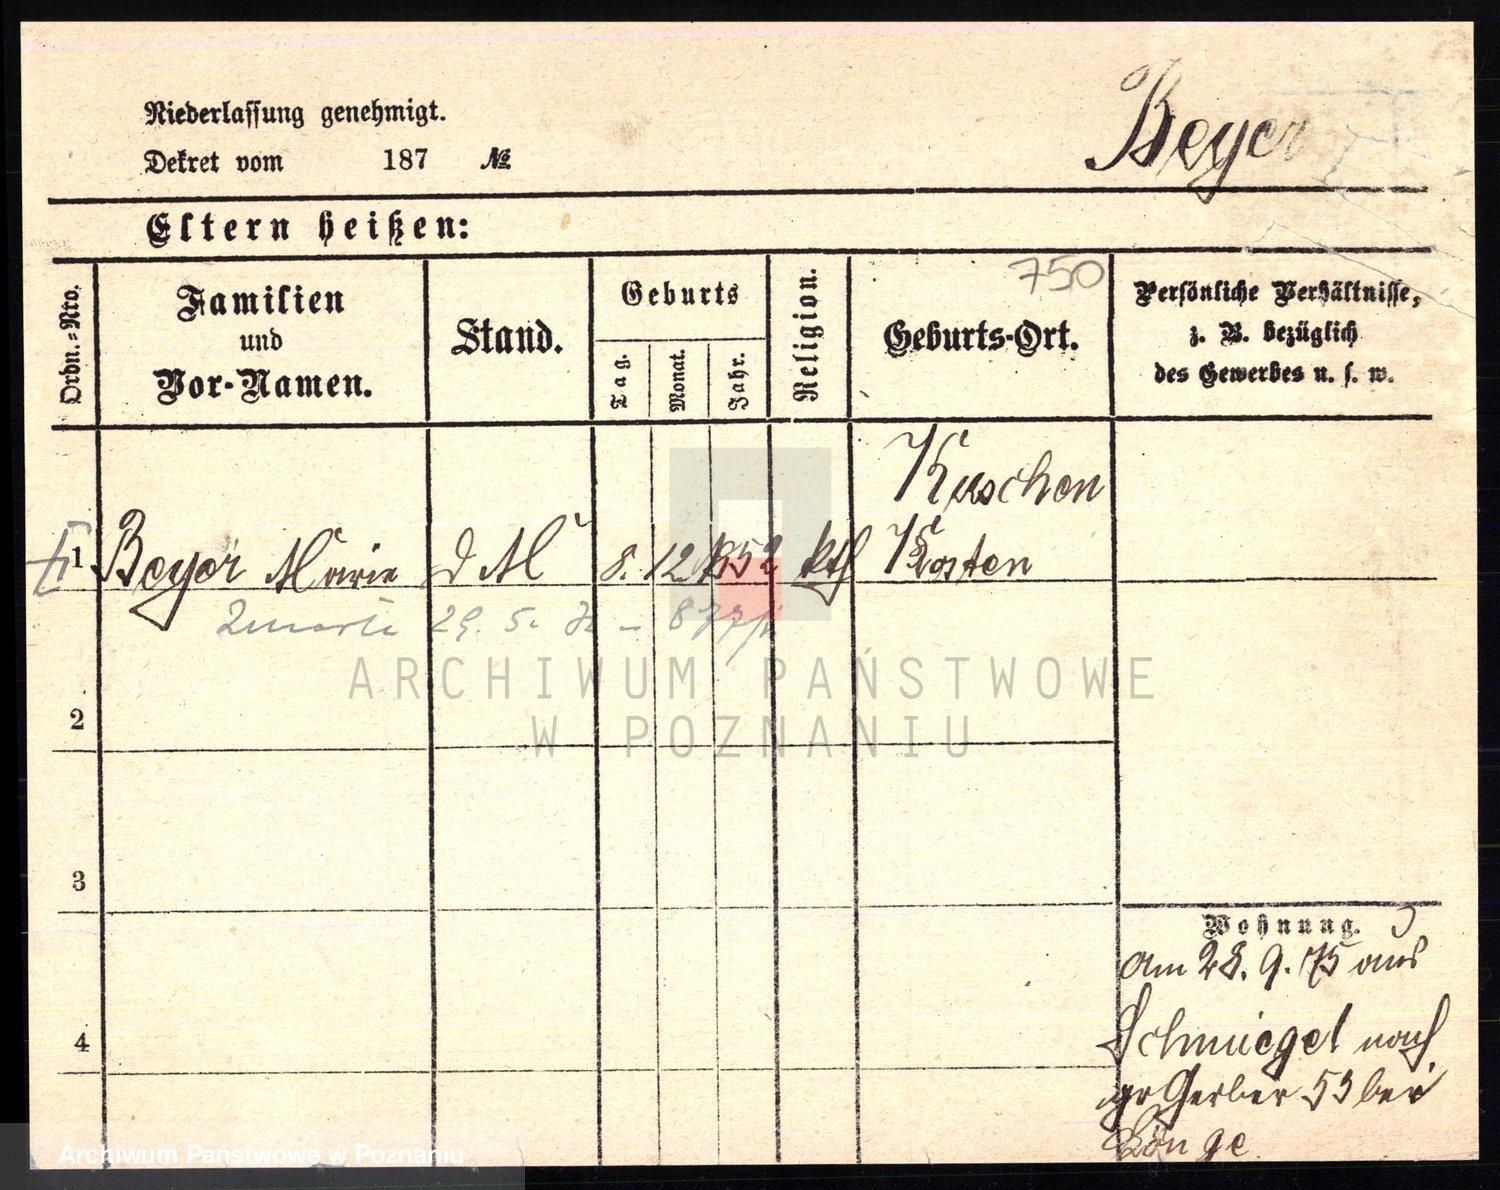 Beyer
Niederlassung genehmigt.
Dekret vom 187 №
Eltern heißen:
750
Ordn.-Nro.
Familien
und
Vor-Namen.
Stand.
Geburts
Tag.
Monat.
Jahr.
Religion.
Geburts-Ort.
Persönliche Verhältnisse,
z. B. bezüglich
des Gewerbes u. s. w.
Kuschen
1 Beyer Marie d M 8. 12 1852 kth Kosten
29. 5.
2
3
4
Wohnung.
am 28. 9. 75 aus
Schmiegel nach
gr Gerber 53 bei
ARCHIWUM PAŃSTWOWE
W POZNANIU
Archiwum Państwowe w Poznaniu